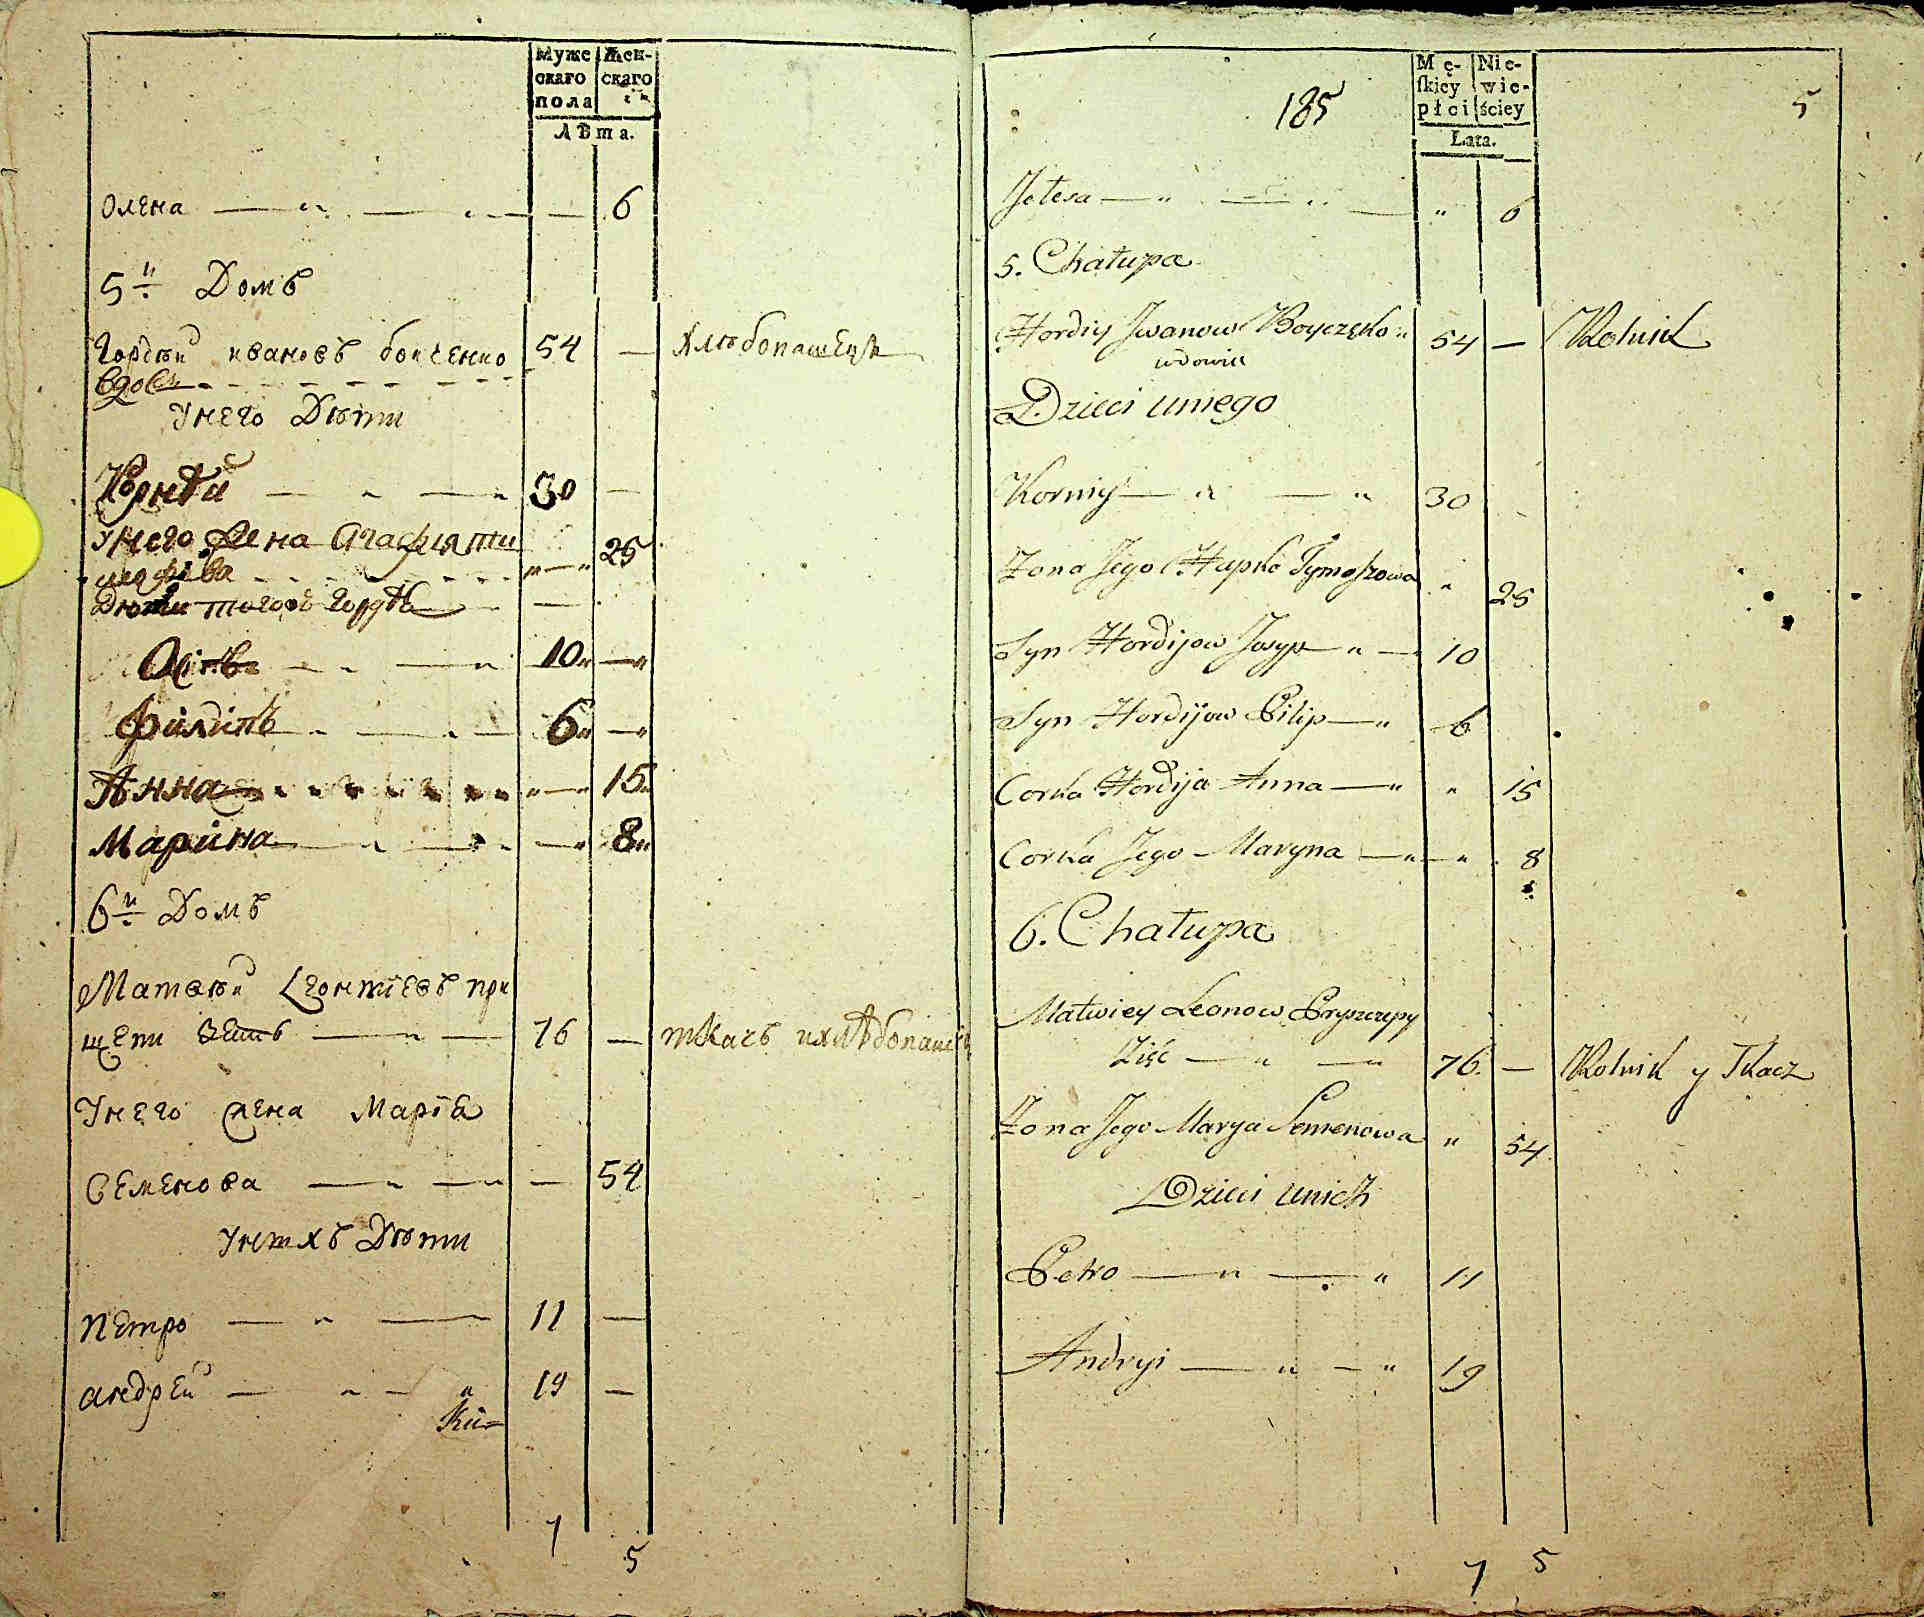 Муже
скаго
пола
Жен-
скаго
Лѣта.
Олена 6
5й Домъ
Гордѣй ивановъ бойченко 54 — хлѣбопашецъ
вдовъ
Унего Дѣти
Корнѣй 30 —
унего жена Агафия ти
мофѣева 25
Дѣти тогожъ гордѣя
Осипъ 10 —
Филипъ 6 —
Анна 15
Марина 8
6й Домъ
Матвѣй Леонтїевъ при
щепи зять 76 — ткачъ ихлѣбопашецъ
Унего жена Марїя
Семенова — 54
унихъ Дѣти
Петро 11 —
андрей 19 —
7
5
185
Mę-
ſkiey
płci
Nie-
wie-
ściey
Lata.
5
6
5. Chałupa
Hordiy Jwanow Boyczęko 54 — Rolnik
wdowiec
Dzieci uniego
Korniy 30
Zona Jego Hapka Tymoszowa 25
Syn Hordijow Josyp 10
Syn Hordijow Pilip 6
Corka Hordija Anna 15
Corka Jego Maryna 8
6. Chałupa
Matwiey Leonow Pryszczepy
Zięć 76. — Rolnik y Tkacz
Zona Jego Marya Semenowa 54
Dzieci unich
Petro 11
Andryi 19
7 5